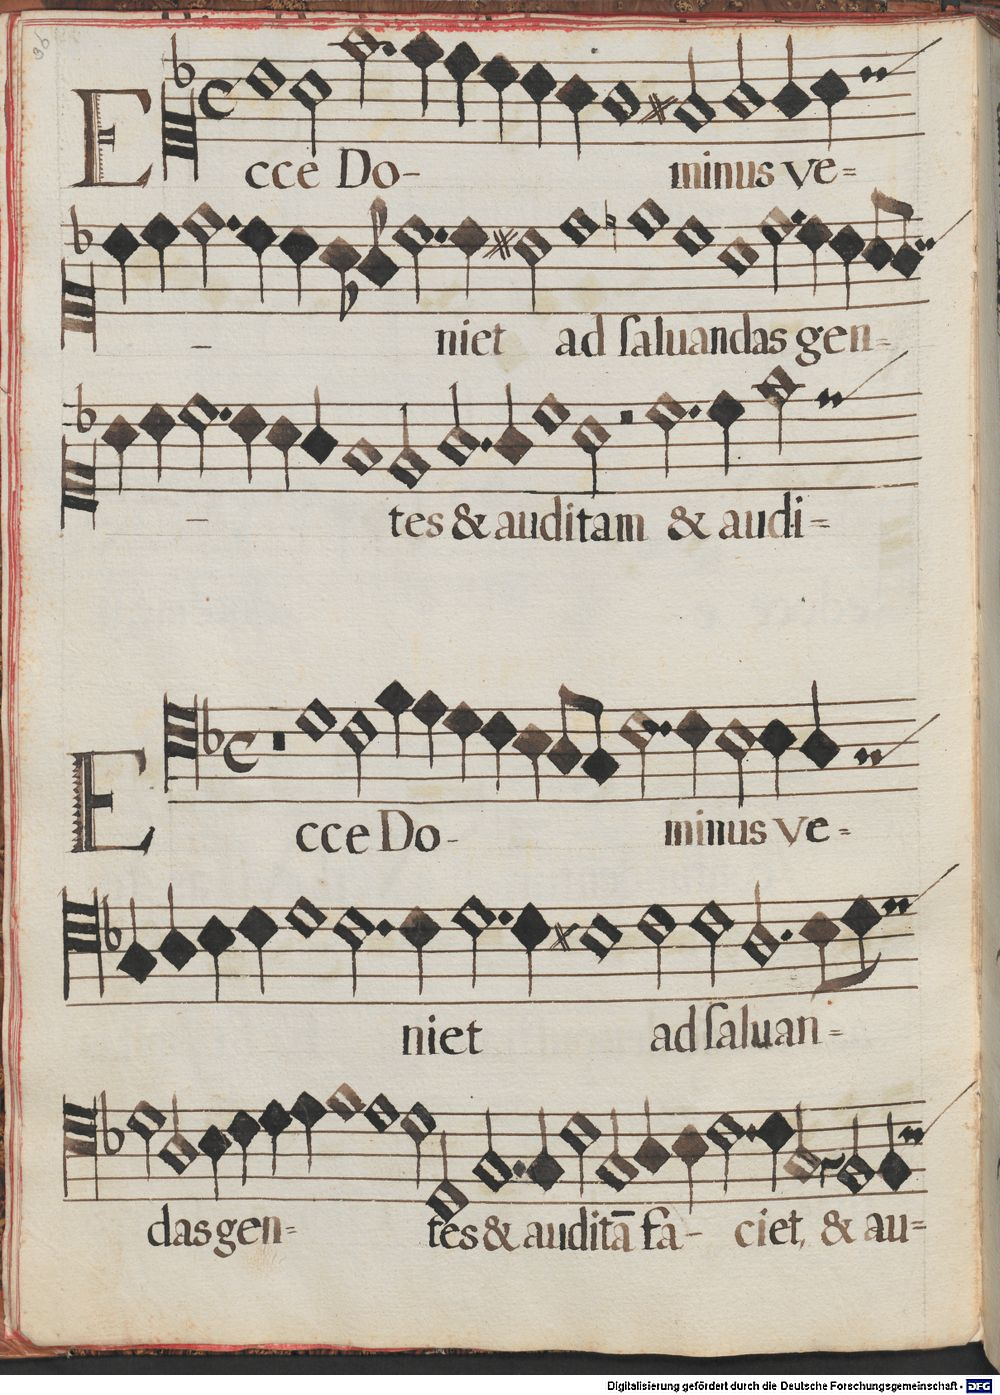 36
Ecce Do- minus ve=
- niet ad saluandas gen=
- tes & auditam & audi=
Ecce Do- minus ve=
niet ad saluan=
das gen= tes & auditã fa- ciet, & au=
Digitalisierung gefördert durch die Deutsche Forschungsgemeinschaft - DFG